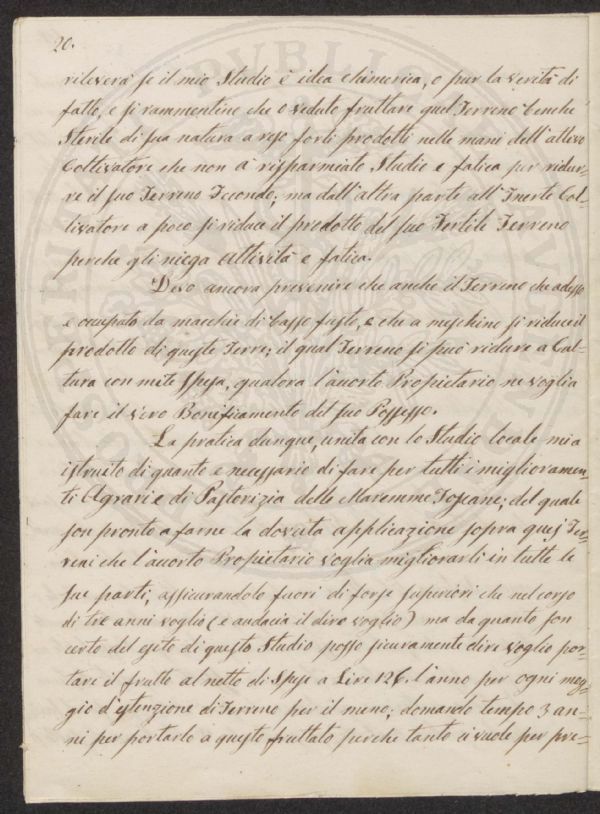 20.
rileverà se il mio Studio è idea chimerica, o pur la verità di
fatto, e si rammentino che ò veduto fruttare quel Terreno benche
Sterile di sua natura a reso forti prodotti nelle mani dell'attivo
Coltivatore che non à risparmiato Studio e fatica per ridur=
re il suo Terreno Fecondo; ma dall'altra parte all'Inerte Col=
tivatore a poco si riduce il prodotto del suo Fertile Terreno
perche gli niega Attività e fatica.
Devo ancora prevenire che anche il Terreno che adesso
e occupato da macchie di basso fusto, e che a meschino si riduce il
prodotto di queste Terre; il qual Terreno si può ridurre a Col=
tura con mite spesa, qualora l'accorto Proprietario ne voglia
fare il vero Bonificamento del suo Possesso.
La pratica dunque, unita con lo Studio locale mi a
istruito di quanto e necessario di fare per tutti i miglioramen=
ti Agrari e di Pastorizia delle Maremme Toscane; del quale
son pronto a farne la dovuta applicazione sopra quei Ter=
reni che l'accorto Proprietario voglia migliorarli in tutte le
sue parti, assicurandolo fuori di forze superiori che nel corso
di tre anni voglio (e audacia il dire voglio) ma da quanto son
certo del esito di questo Studio posso sicuramente dire voglio por=
tare il frutto al netto di Spese a Lire 126. l'anno per ogni mog=
gio d'estenzione di Terreno per il meno; domando tempo 3 an=
ni per portarlo a questo fruttato perche tanto ci vuole per pre=